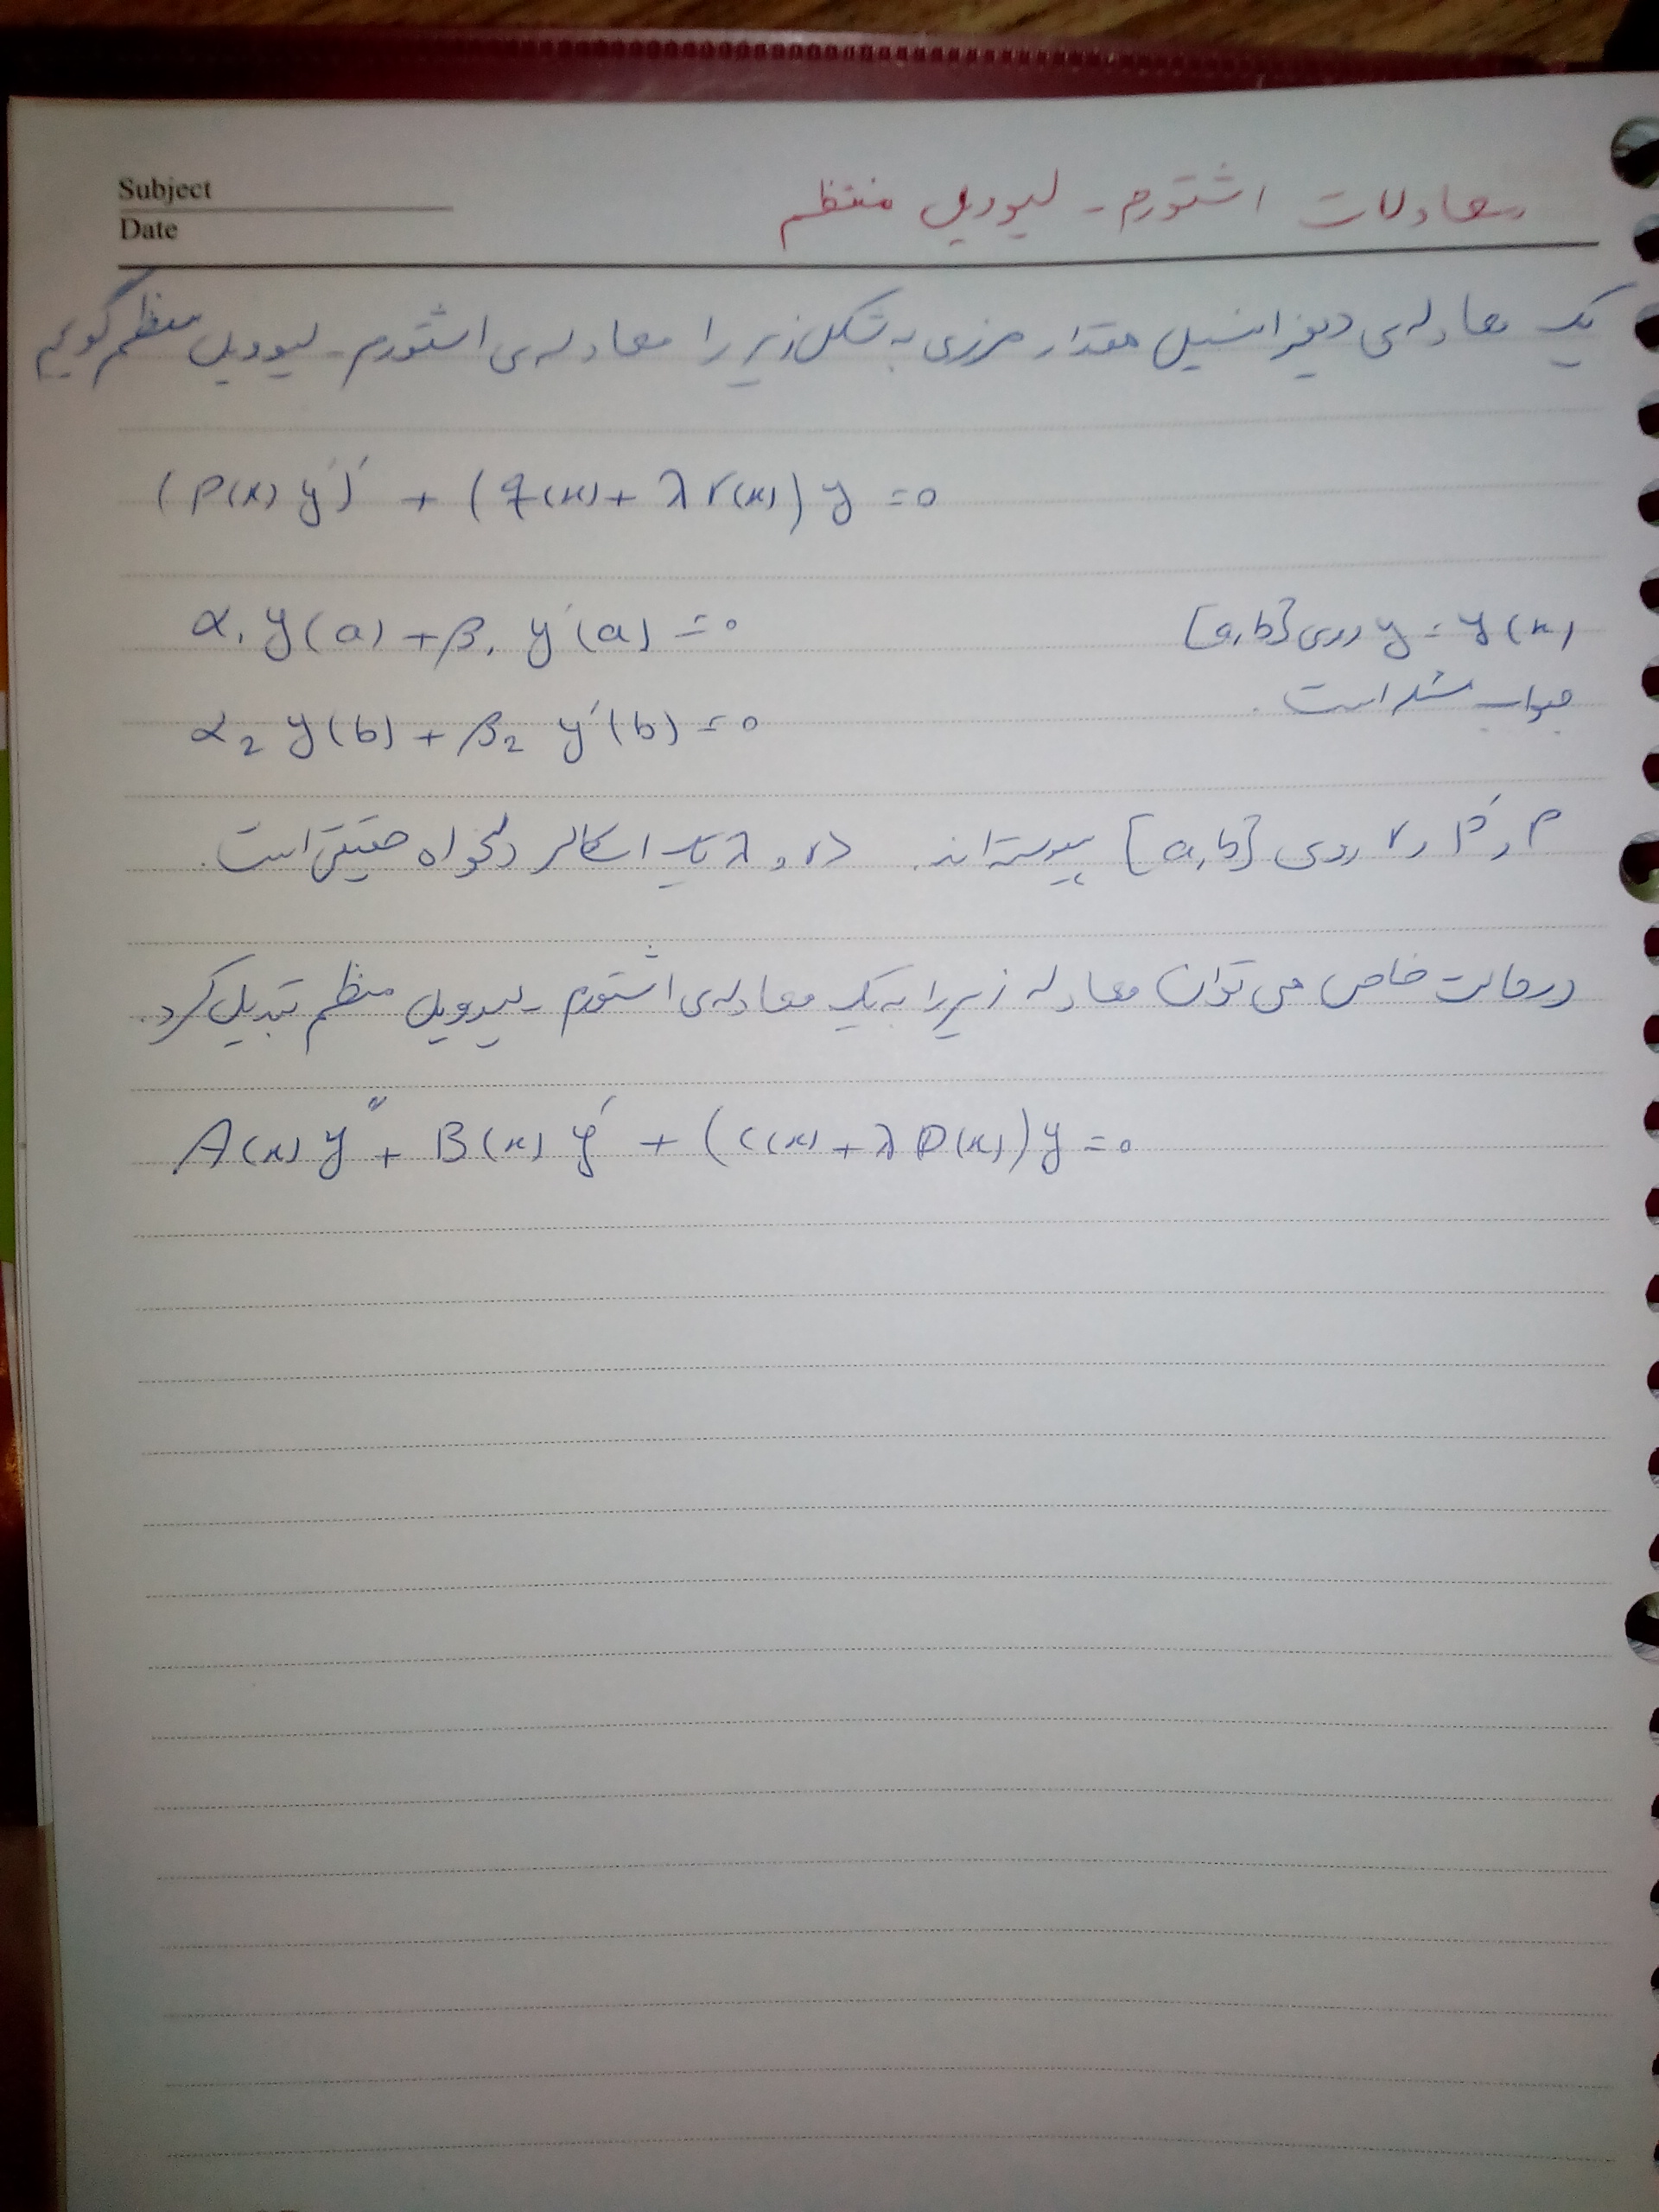 Subject
Date
معادلات اشتورم - لیوویل منتظم
یک معادله‌ی دیفرانسیل مقدار مرزی به شکل زیر را معادله‌ی اشتورم - لیوویل منظم گوییم
(p(x) y')' + (q(x) + λ r(x)) y = 0
α₁ y(a) + β₁ y'(a) = 0 y = y(x) روی [a,b]
جواب مسئله است.
α₂ y(b) + β₂ y'(b) = 0
p و p' و r روی [a,b] پیوسته‌اند. r>0 و λ یک اسکالر دلخواه حقیقی است.
در حالت خاص می‌توان معادله زیر را به یک معادله‌ی اشتورم - لیوویل منظم تبدیل کرد.
A(x) y'' + B(x) y' + (C(x) + λ D(x)) y = 0